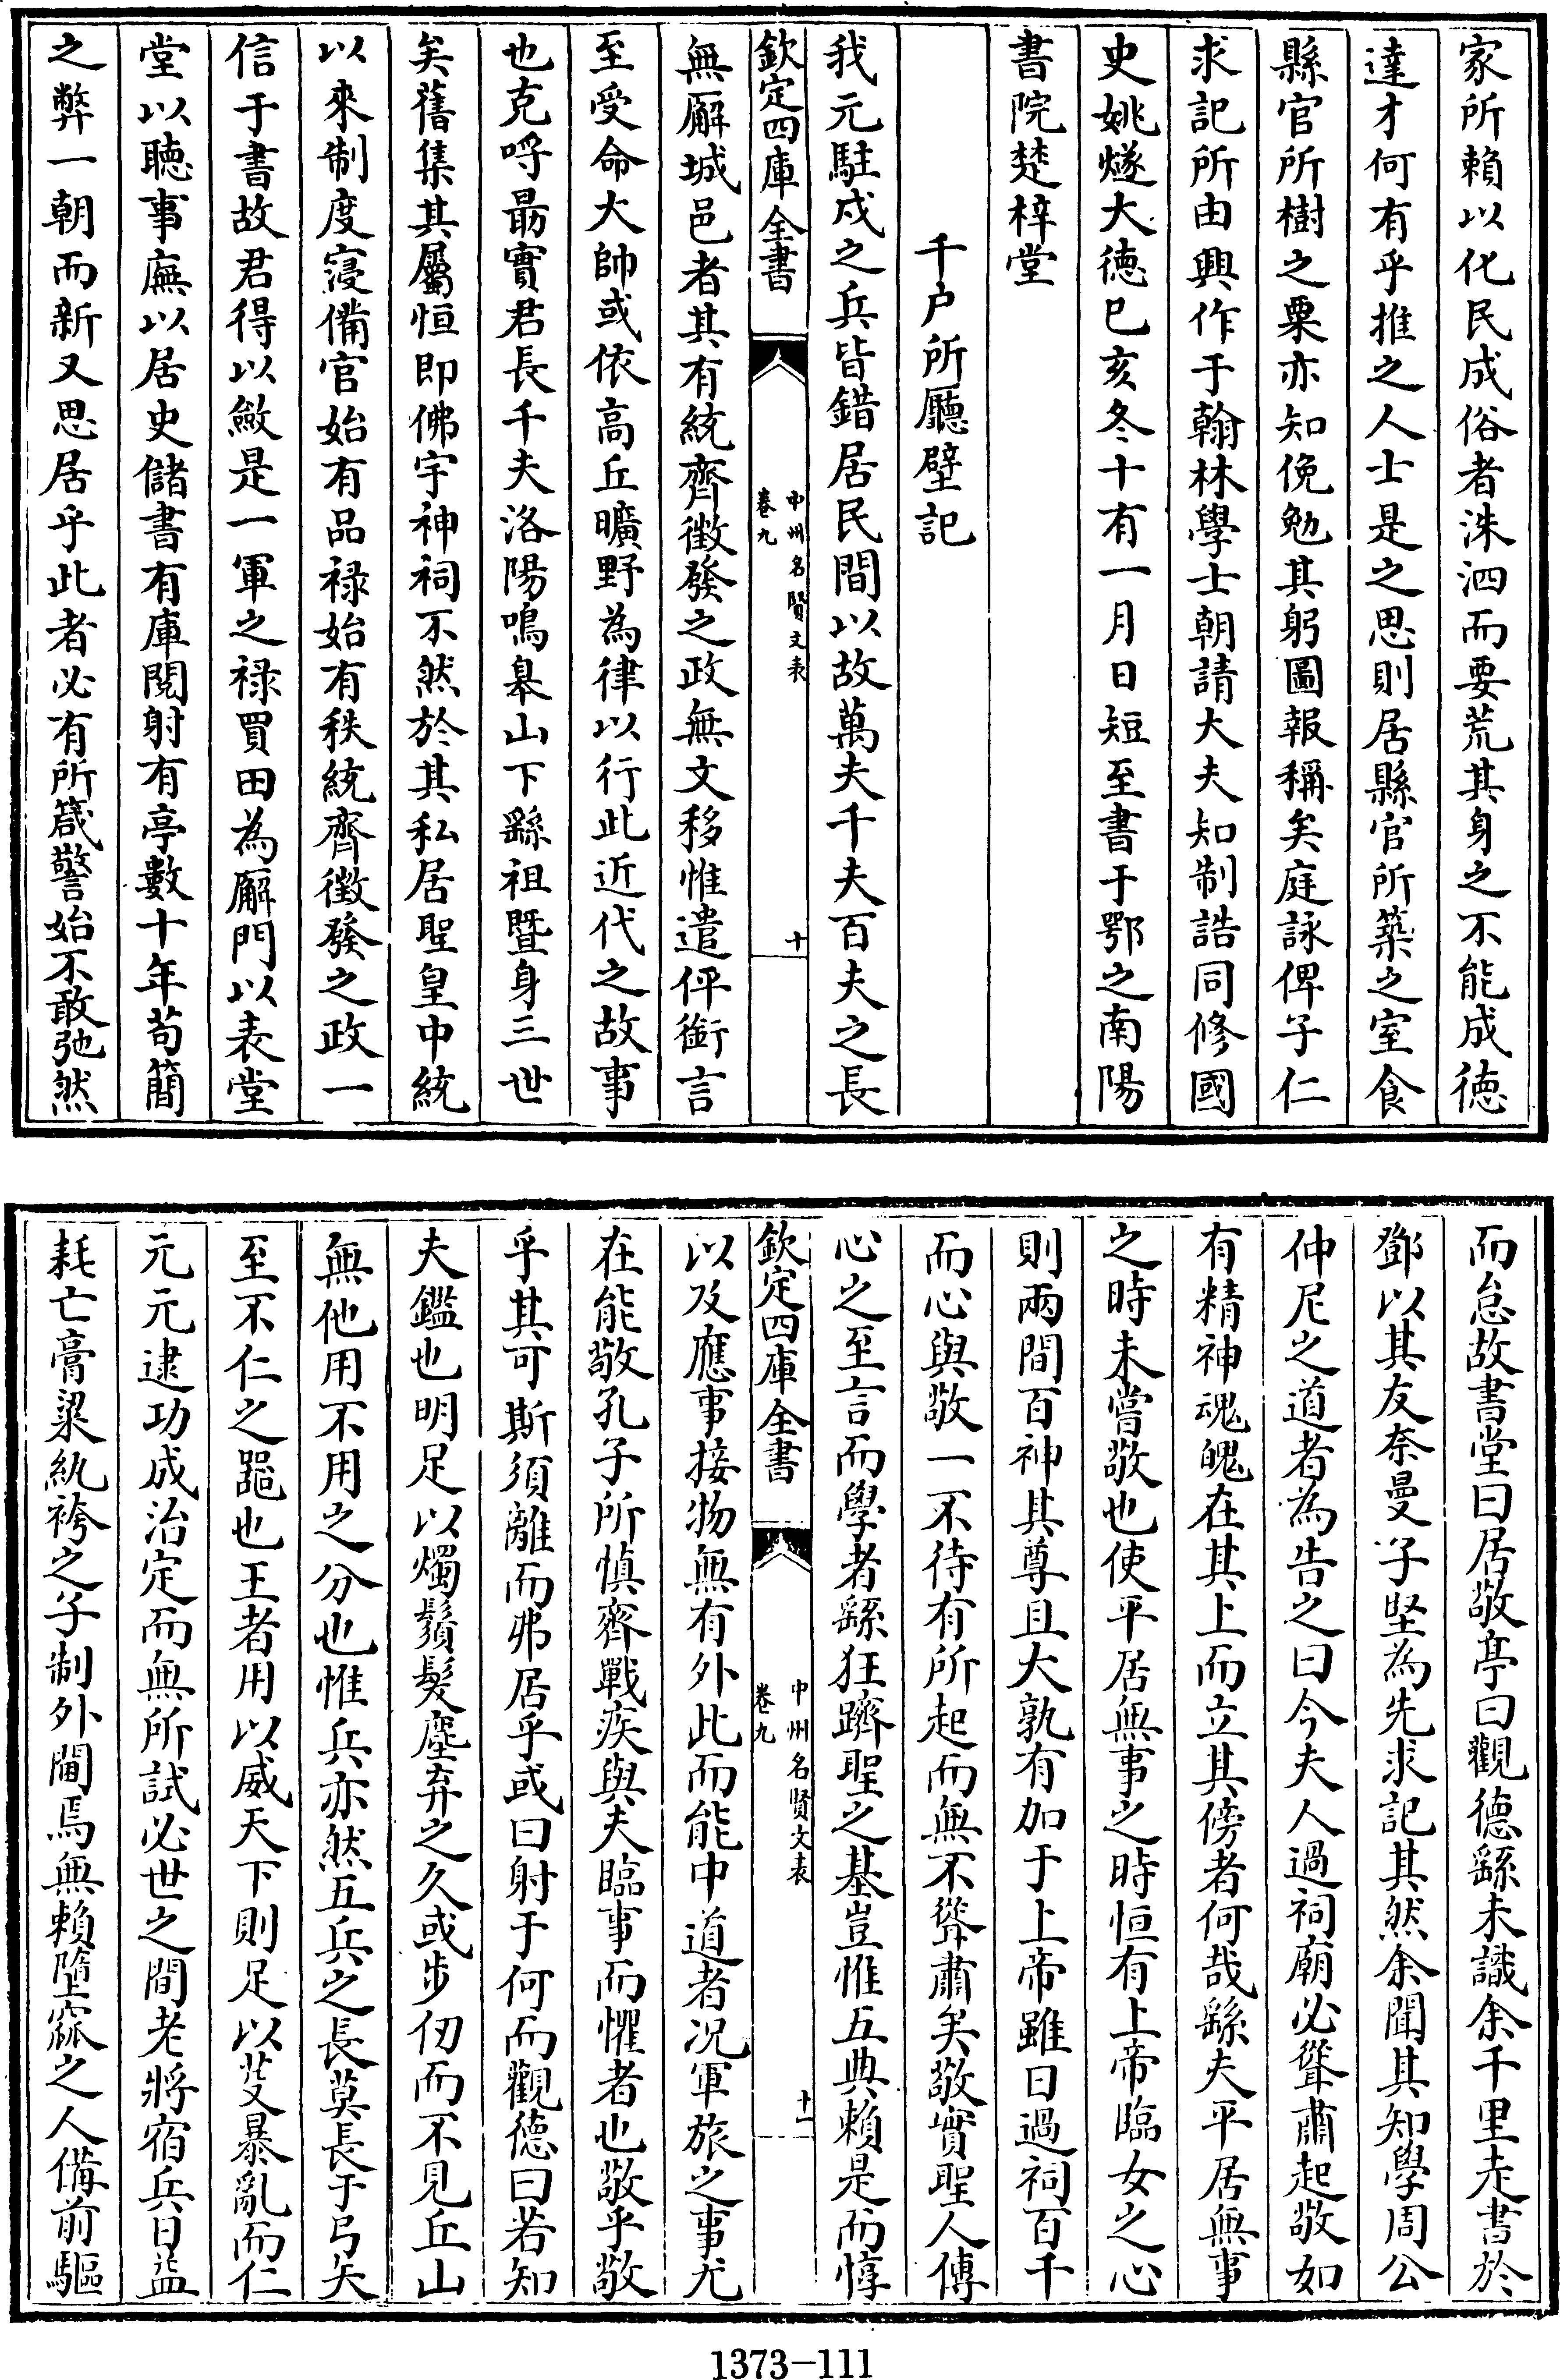 家所賴以化民成俗者洙泗而要荒其身之不能成徳
達才何有乎推之人士是之思則居縣官所築之室食
縣官所樹之粟亦知俛勉其躬圖報稱矣庭詠俾子仁
求記所由興作于翰林學士朝請大夫知制誥同修國
史姚燧大徳已亥冬十有一月日短至書于鄂之南陽
書院楚梓堂
千户所廳壁記
我元駐戍之兵皆錯居民間以故萬夫千夫百夫之長
欽定四庫全書
中州名賢文表
卷九
十
無廨城邑者其有統齊徴發之政無文移惟遣伻銜言
至受命大帥或依高丘曠野為律以行此近代之故事
也克呼朂實君長千夫洛陽鳴臯山下繇祖暨身三世
矣舊集其屬恒即佛宇神祠不然於其私居聖皇中統
以來制度寖備官始有品禄始有秩統齊徴發之政一
信于書故君得以斂是一軍之禄買田為廨門以表堂
堂以聴事廡以居史儲書有庫閲射有亭數十年茍簡
之弊一朝而新又思居乎此者必有所箴警始不敢弛然
而怠故書堂曰居敬亭曰觀徳繇未識余千里走書於
鄧以其友奈曼子堅為先求記其然余聞其知學周公
仲尼之道者為告之曰今夫人過祠廟必聳肅起敬如
有精神魂魄在其上而立其傍者何哉繇夫平居無事
之時未嘗敬也使平居無事之時恒有上帝臨女之心
則兩間百神其尊且大孰有加于上帝雖日過祠百千
而心與敬一不待有所起而無不聳肅矣敬實聖人傳
心之至言而學者繇狂躋聖之基豈惟五典賴是而惇
欽定四庫全書
中州名賢文表
卷九
十一
以及應事接物無有外此而能中道者况軍旅之事尤
在能敬孔子所慎齊戰疾與夫臨事而懼者也敬乎敬
乎其可斯須離而弗居乎或曰射于何而觀徳曰若知
夫鑑也明足以燭鬚髮塵弃之久或步仞而不見丘山
無他用不用之分也惟兵亦然五兵之長莫長于弓矢
至不仁之噐也王者用以威天下則足以芟暴亂而仁
元元逮功成治定而無所試必世之間老將宿兵日益
耗亡膏粱紈袴之子制外閫焉無賴墮窳之人備前驅
1373-111